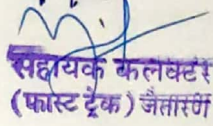 सहायक कलक्टर
(फास्ट ट्रैक) जैतारण